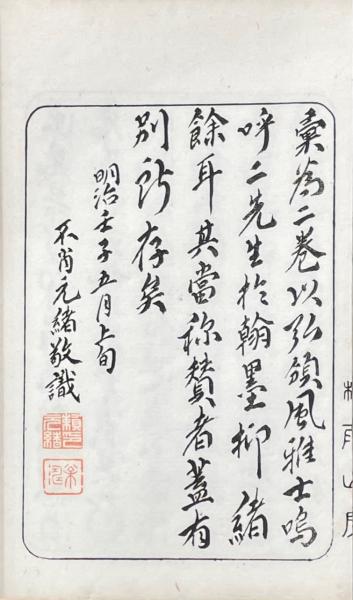 彙為二巻以弘頒風雅士嗚
呼二先生於翰墨抑緒
餘耳其當称賛者蓋有
別所存矣
明治壬子五月上旬
不肖元緒敬識